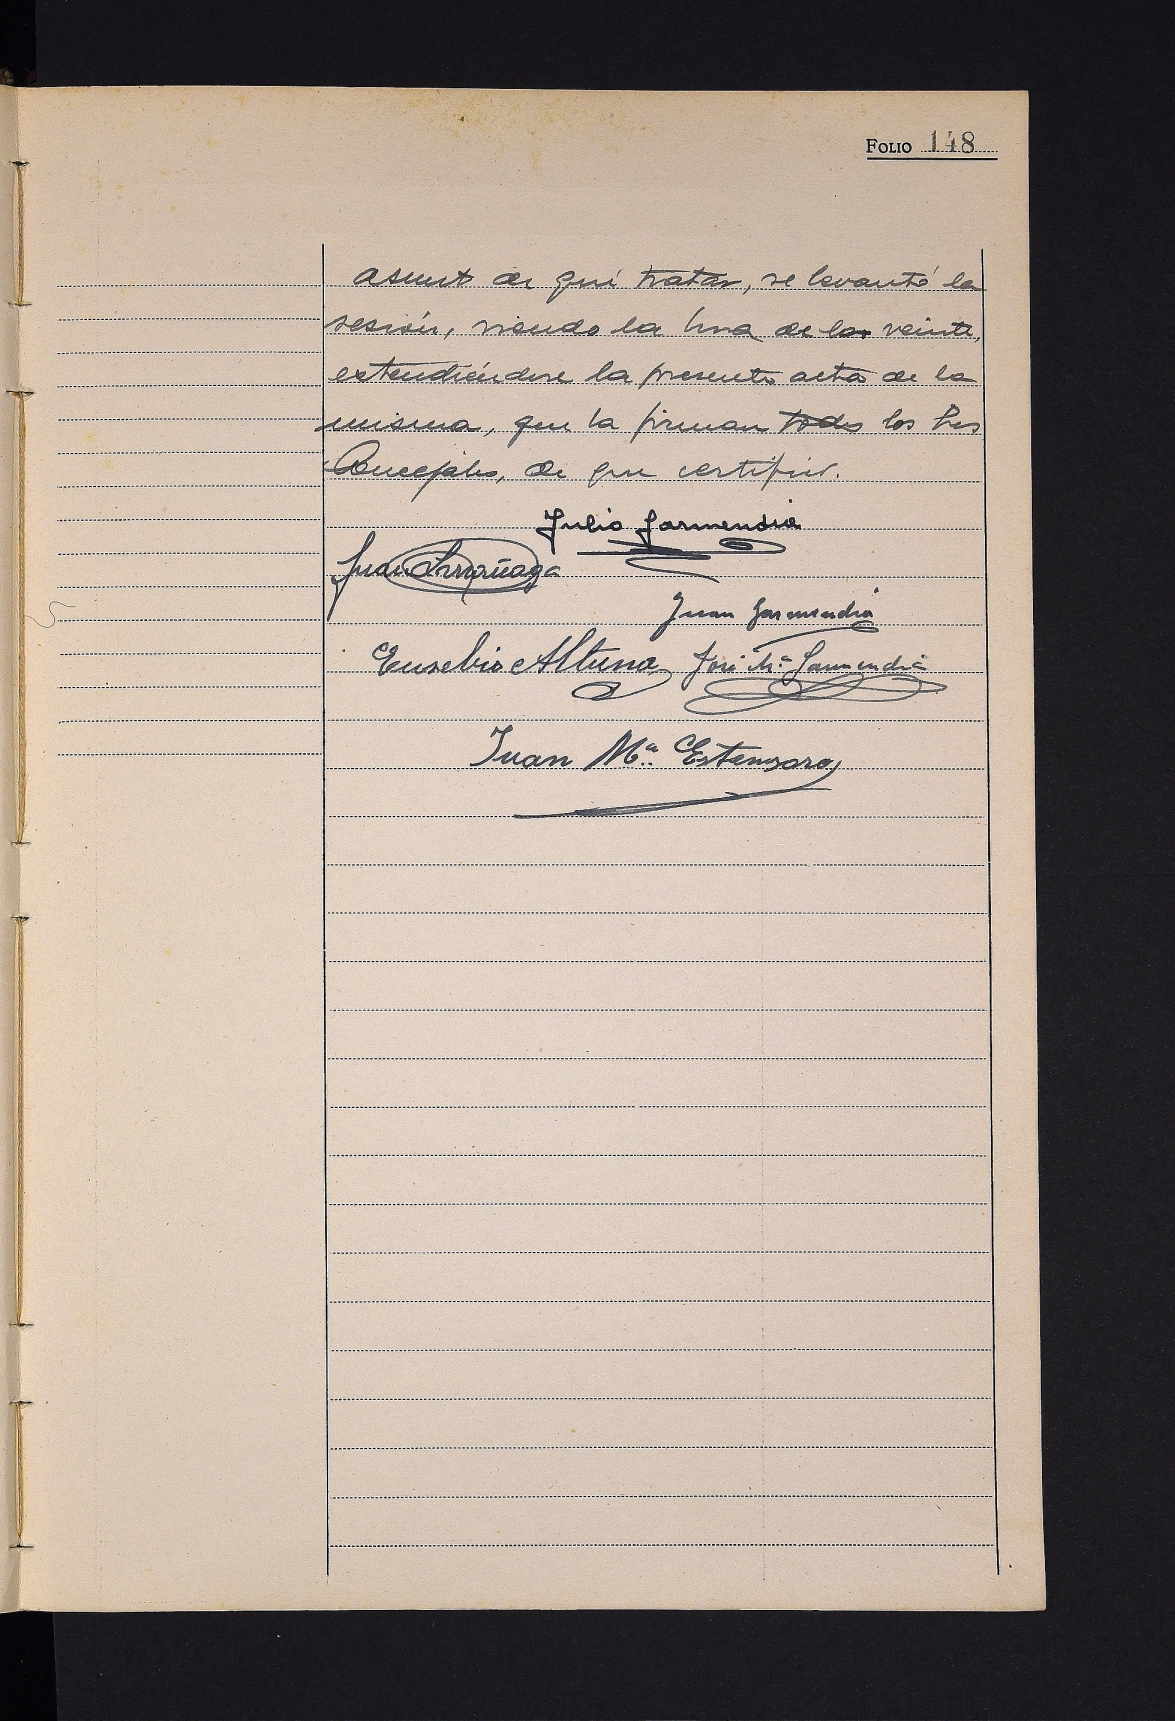 FOLIO 148
asunto de qué tratar, se levantó la
sesión, siendo la hora de las veinte,
extendiéndose la presente acta de la
misma, que la firman todos los Srs
Concejales, de que certifico.
Julio Garmendia
Juan Arruñaga
Juan Garmendia
Eusebio Altuna José Mª Garmendia
Juan Mª Estensoro